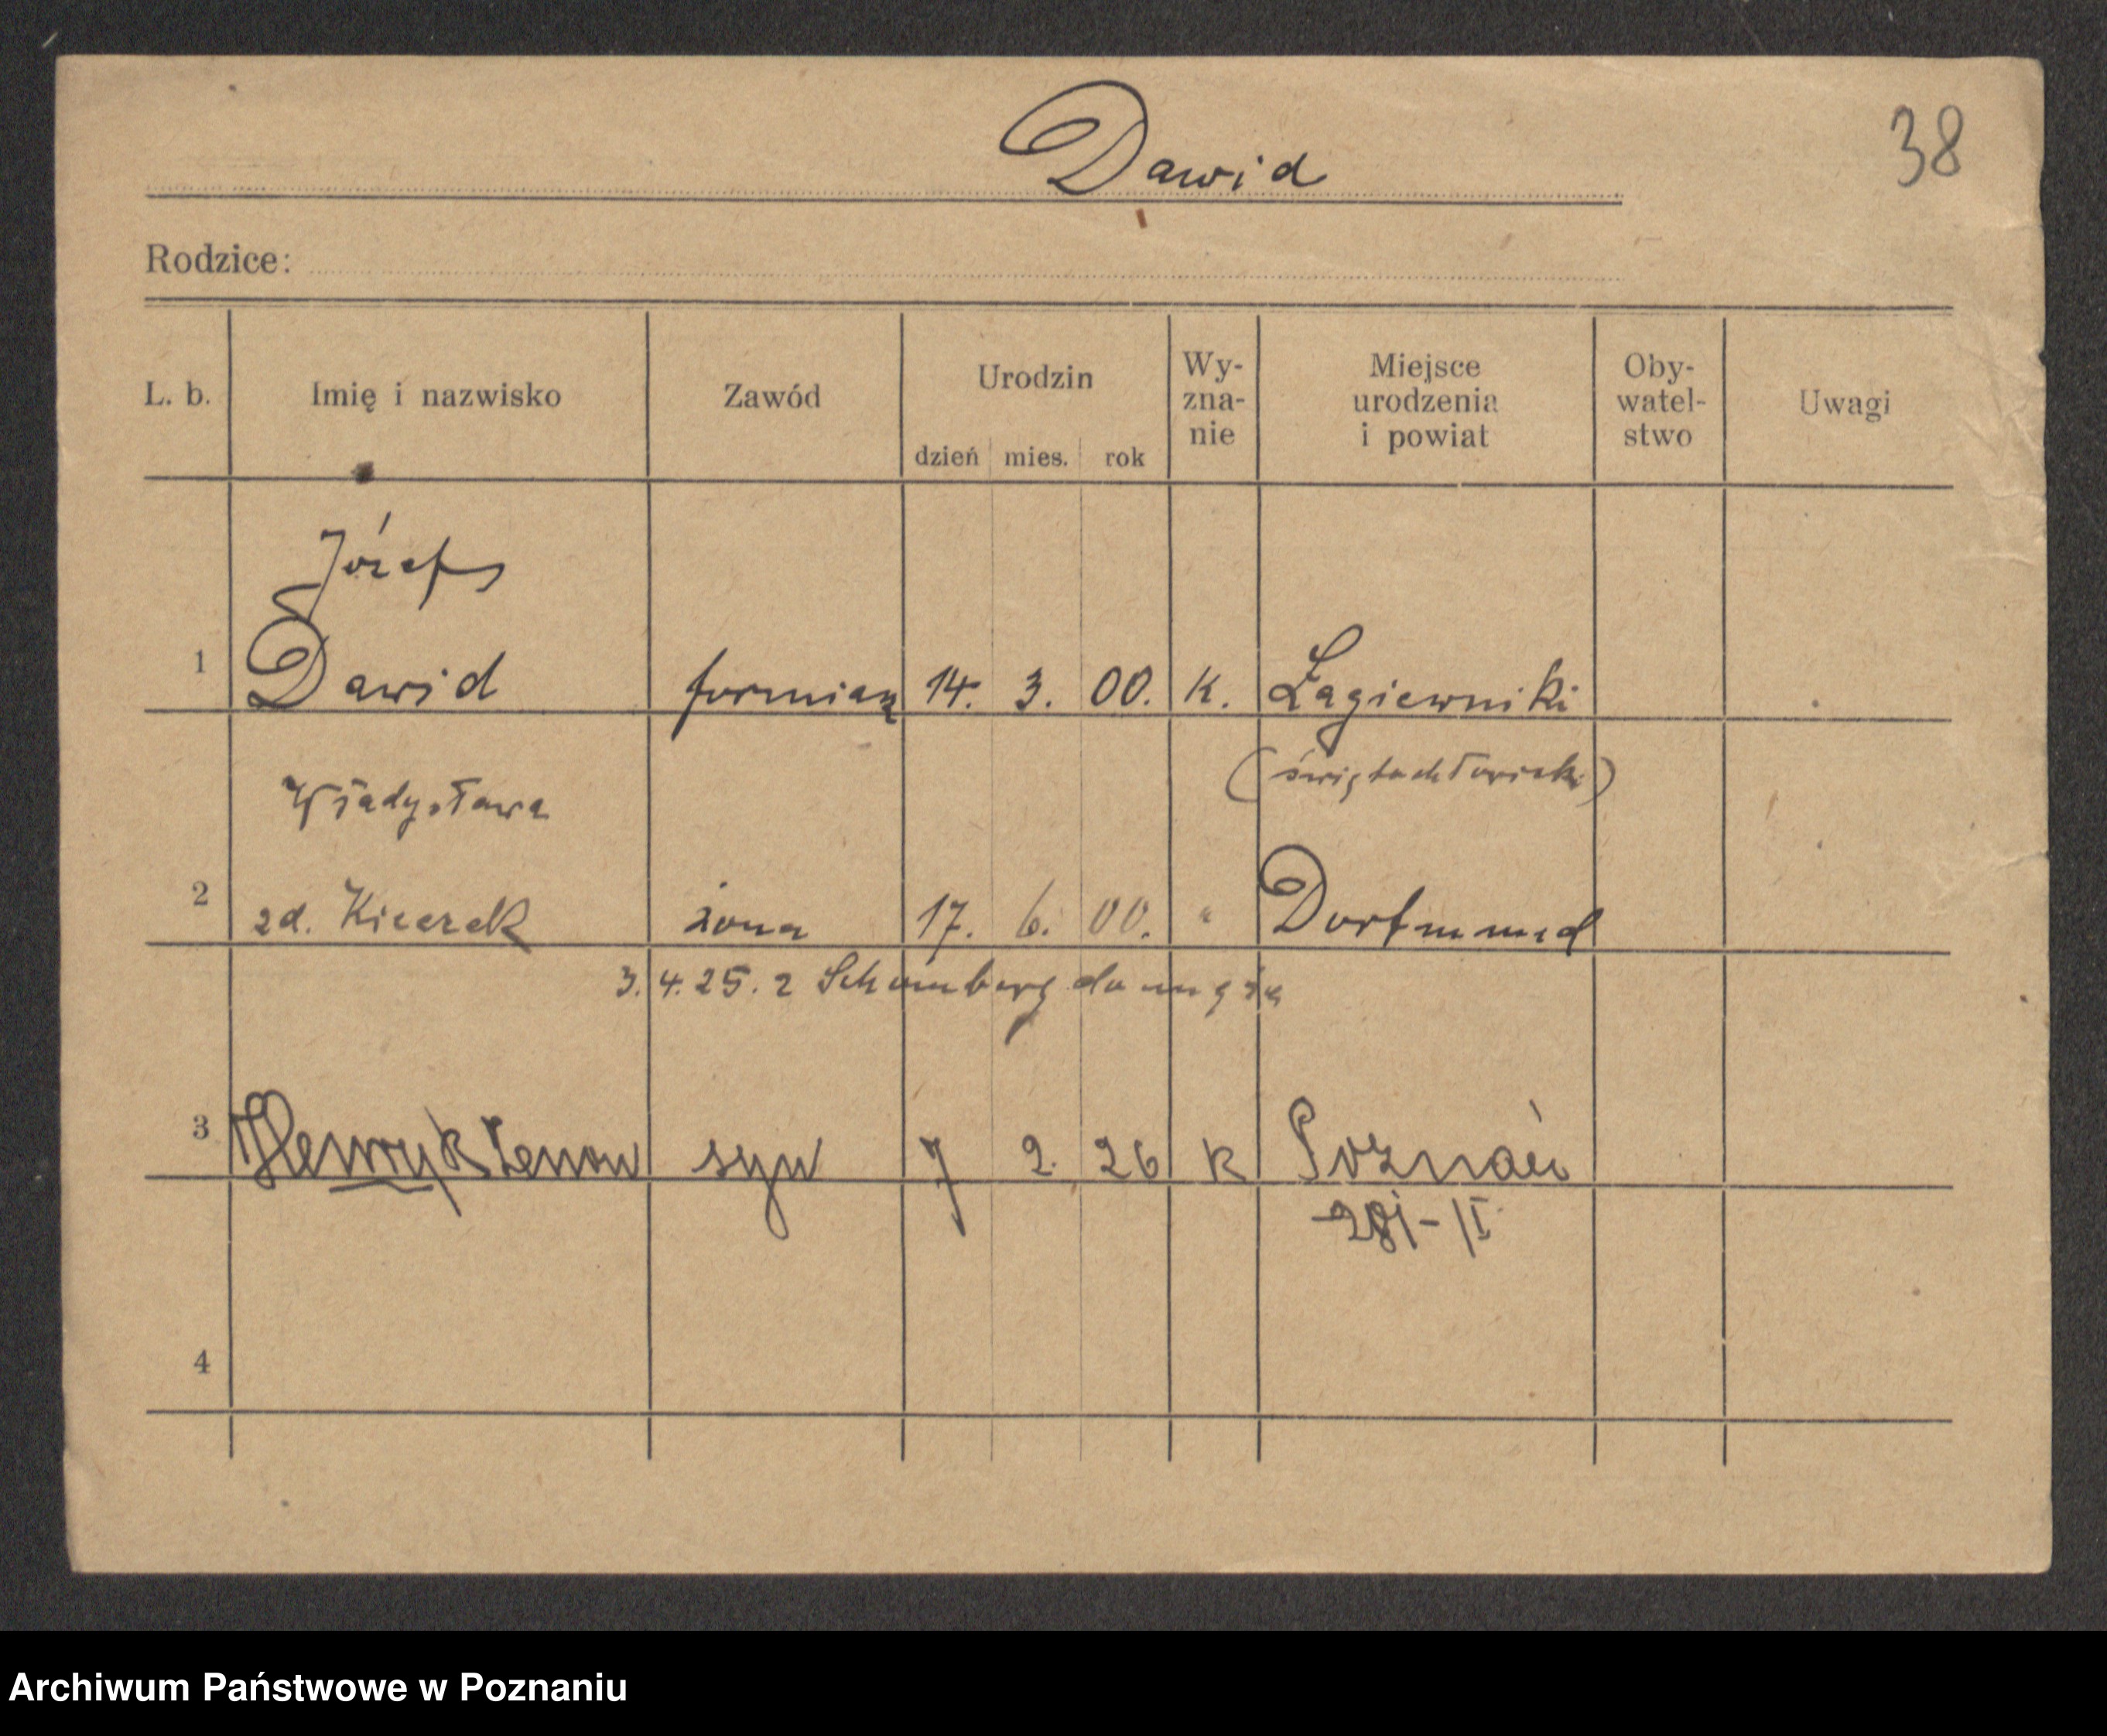 Dawid
38
Rodzice:
L. b. Imię i nazwisko Zawód Urodzin dzień mies. rok Wy-zna-nie Miejsce urodzenia i powiat Oby-watel-stwo Uwagi
Józef
1 Dawid formiarz 14. 3. 00. K. Łagiewniki
(świętochłowicki)
Władysława
2 zd. Kicerek żona 17. 6. 00. " Dortmund
3. 4. 25. z Schomberg do męża
3 Henryk Zenon syn 7 2. 26 k Poznań
-II
4
Archiwum Państwowe w Poznaniu